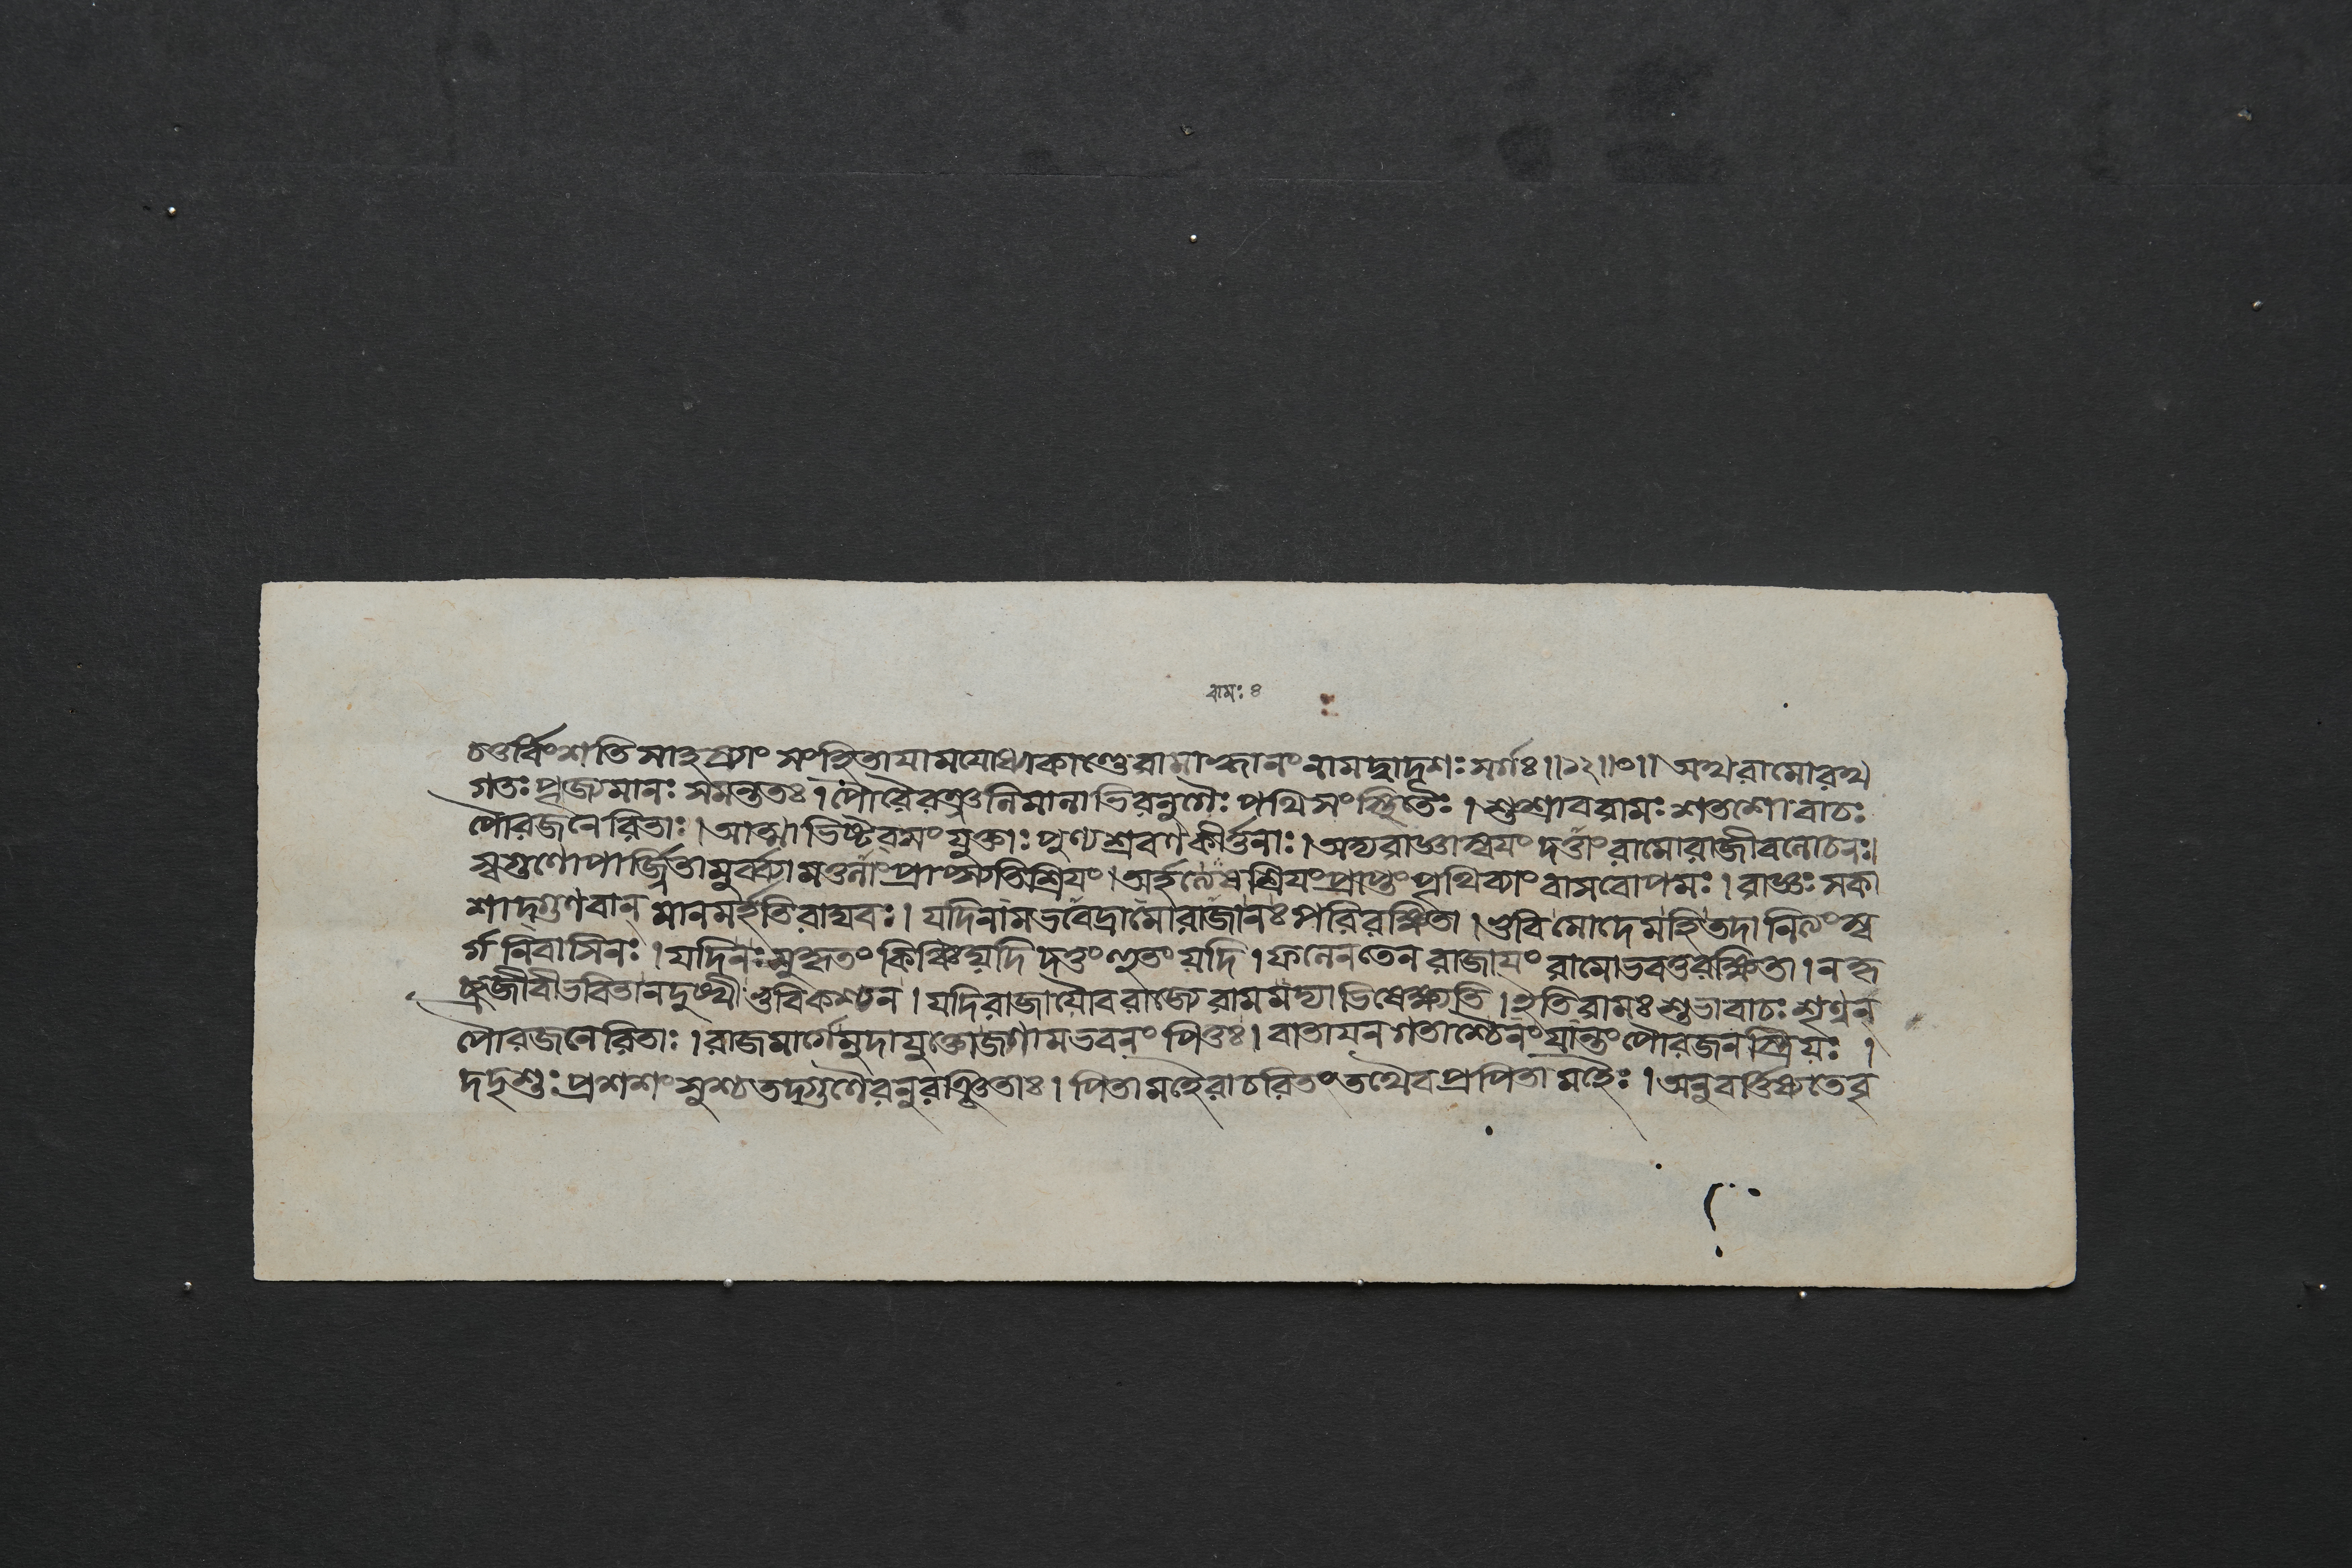 রামঃ ৪
চতুর্বিংশতিসাহস্র্যাং সংহিতাযামযোধ্যাকাণ্ডেরামাহ্বানংনামদ্বাদশঃসর্গঃ॥১২॥০॥ অথরামোরথ
গতঃপূজ্যমানঃ সমন্ততঃ। পৌরৈরঞ্জলিমালাভিরনুগৈঃ পথিসংস্থিতৈঃ। শুশ্রাবরামঃ শতশোবাচঃ
পৌরজনেরিতাঃ। আত্মাভিষ্টবসংযুক্তাঃ পুণ্যশ্রবণকীর্ত্তনাঃ। অদ্যরাজ্ঞাস্বযং দত্তাংরামোরাজীবলোচনঃ।
স্বগুণোপার্জ্জিতামুর্ব্ব্যামতুলাংপ্রাপ্স্যতিশ্রিযং। অর্হত্যেষশ্রিযংপ্রাপ্তুংপৃথিব্যাংবাসবোপমঃ। রাজ্ঞঃসকা
শাদ্গুণবান্ মানমর্হতিরাঘবঃ। যদিনামভবেদ্রামোরাজানঃপরিরক্ষিতা। ভুবিমোদেমহিতদানিত্যংস্ব
র্গনিবাসিনঃ। যদিনঃসুকৃতং কিঞ্চিদ্যদি দত্তংহুতংযদি। ফলেনতেন রাজাযং রামোভবতুরক্ষিতা। নহ্য
জীবীভবিতানদুঃখীভুবিকশ্চন। যদিরাজাযৌবরাজ্যেরামমদ্যাভিষেক্ষ্যতি। ইতিরামঃশুভাবাচঃ শৃণ্বন্
পৌরজনেরিতাঃ। রাজমার্গেমুদাযুক্তোজগামভবনং পিতুঃ। বাতাযনগতাশ্চৈনংযান্তংপৌরজনস্ত্রিযঃ।
দদৃশুঃপ্রশশংসুশ্চতদ্গুণৈরনুরঞ্জিতাঃ। পিতামহৈরাচরিতংতথৈবপ্রপিতামহৈঃ। অনুবর্ত্তিষ্যতেবৃ